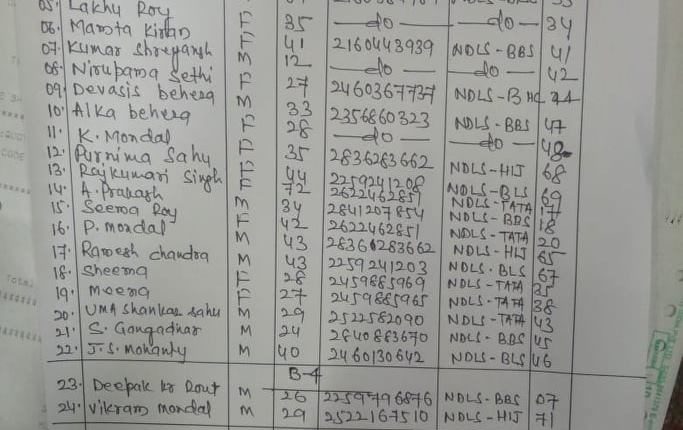 05. Lakhu Roy F
06. Mamta Kiran F 35 —do— —do— 34
07. Kumar Shreyansh M 41 2160443939 NDLS-BBS 41
08. Nirupama Sethi F 12 —do— —do— 42
09. Devasis behera M 27 2460367737 NDLS-BHC 44
10. Alka behera F 33 2356860323 NDLS-BBS 47
11. K. Mondal F 28 —do— —do— 48
12. Purnima Sahu F 35 2836283662 NDLS-HIJ 68
13. Rajkumari Singh F 44 2259241208 NDLS-BLS 69
14. A. Prakash 72 2622462851 NDLS-TATA 17
15. Seema Roy M 34 2841207854 NDLS-BBS 18
16. P. mondal F 42 2622462851 NDLS-TATA 20
17. Ramesh chandra M 43 2836283662 NDLS-HIJ 65
18. Sheema M 43 2259241203 NDLS-BLS 67
19. Meena F 28 2459885969 NDLS-TATA 35
20. UMA Shankar Sahu F 27 2459885965 NDLS-TATA 38
21. S. Gangadhar M 29 2522582090 NDLS-TATA 43
22. J.S. Mohanty M 24 2640883670 NDLS-BBS 45
M 40 2460130642 NDLS-BLS 46
B-4
23. Deepak kr Rout M 26 2259796876 NDLS-BBS 07
24. Vikram mondal M 29 2522167510 NDLS-HIJ 71
Total